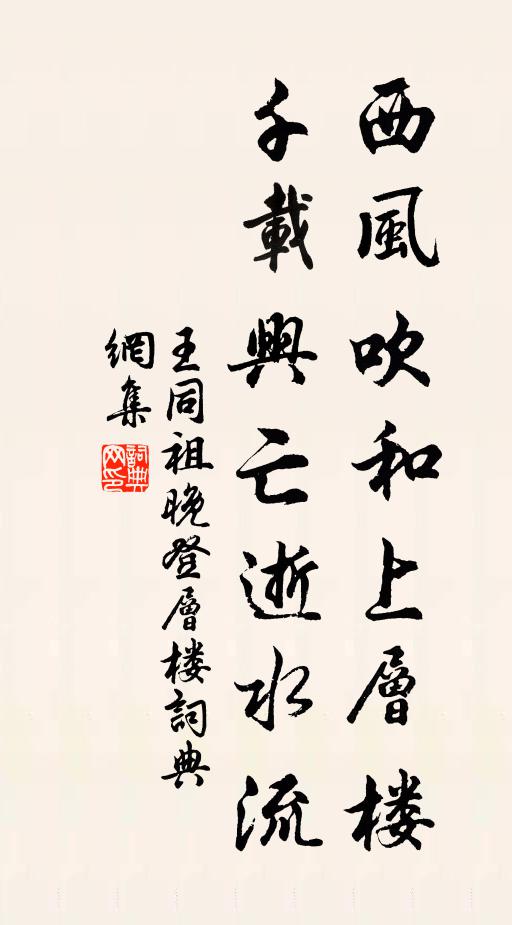 西風吹和上層楼
千載興亡逝水流
王同祖晚登層楼詞典
網集
詞典网印